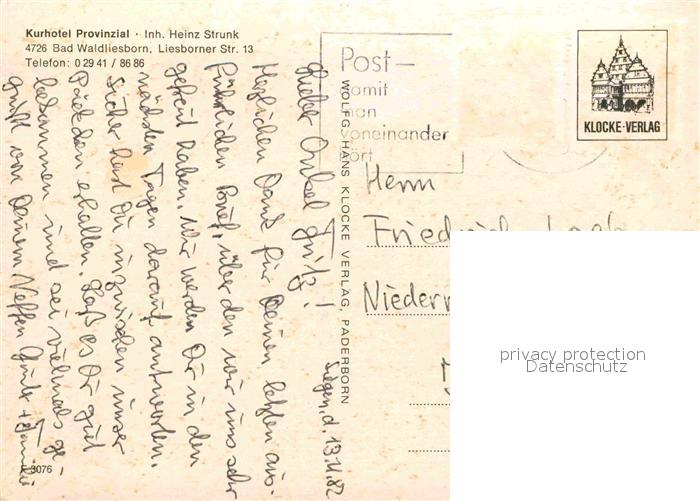 Kurhotel Provinzial · Inh. Heinz Strunk
4726 Bad Waldliesborn, Liesborner Str. 13
Telefon: 0 29 41 / 86 86
Post–
damit
man
voneinander
hört
KLOCKE-VERLAG
WOLFG. HANS KLOCKE VERLAG, PADERBORN
Siegen, d. 13.11.82
Lieber Onkel Fritz!
Herzlichen Dank für Deinen letzten aus-
führlichen Brief, über den wir uns sehr
gefreut haben. Wir werden Dir in den
nächsten Tagen darauf antworten.
Sicher hast Du inzwischen unser
Päckchen erhalten. Laß es Dir gut
bekommen und sei vielmals ge-
grüßt von Deinem Neffen + Familie
Herrn
Friedrich
3076
privacy protection
Datenschutz